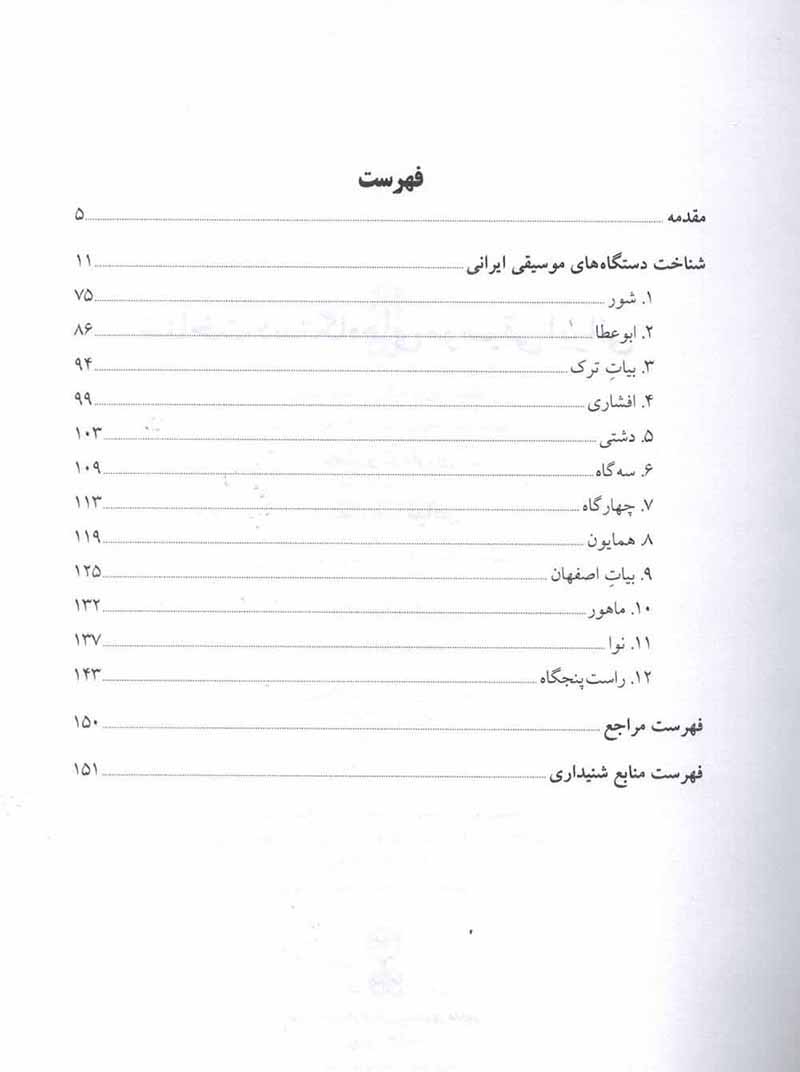 فهرست
مقدمه ۵
شناخت دستگاه‌های موسیقی ایرانی ۱۱
۱. شور ۷۵
۲. ابوعطا ۸۶
۳. بیاتِ ترک ۹۴
۴. افشاری ۹۹
۵. دشتی ۱۰۳
۶. سه‌گاه ۱۰۹
۷. چهارگاه ۱۱۳
۸. همایون ۱۱۹
۹. بیاتِ اصفهان ۱۲۵
۱۰. ماهور ۱۳۲
۱۱. نوا ۱۳۷
۱۲. راست‌پنجگاه ۱۴۳
فهرست مراجع ۱۵۰
فهرست منابع شنیداری ۱۵۱